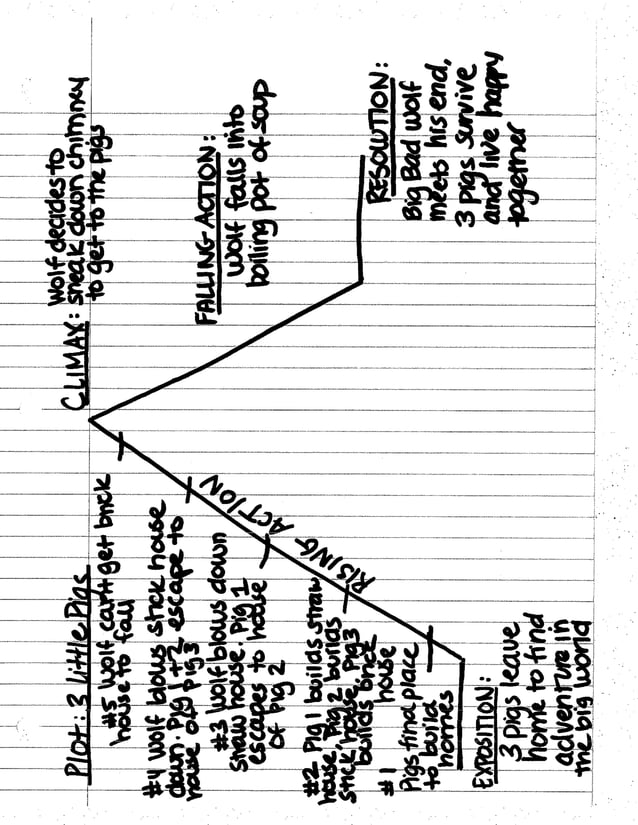 Plot: 3 Little Pigs
CLIMAX: Wolf decides to
sneak down chimney
to get to the pigs
#5 Wolf can't get brick
house to fall
#4 Wolf blows stick house
down. Pig 1 + 2 escape to
house of Pig 3
#3 Wolf blows down
straw house. Pig 1
escapes to house
of Pig 2
#2 Pig 1 builds straw
house, Pig 2 builds
stick house, Pig 3
builds brick
house
#1
Pigs find place
to build
homes
RISING ACTION
EXPOSITION:
3 pigs leave
home to find
adventure in
the big world
FALLING ACTION:
Wolf falls into
boiling pot of soup
RESOLUTION:
Big Bad Wolf
meets his end,
3 pigs survive
and live happy
together